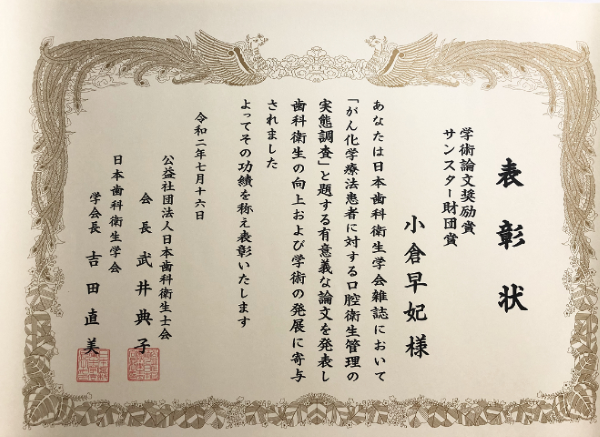 表彰状
学術論文奨励賞
サンスター財団賞
小倉早妃様
あなたは日本歯科衛生学会雑誌において
「がん化学療法患者に対する口腔衛生管理の
実態調査」と題する有意義な論文を発表し
歯科衛生の向上および学術の発展に寄与
されました
よってその功績を称え表彰いたします
令和二年七月十六日
公益社団法人日本歯科衛生士会
会長 武井典子
日本歯科衛生学会
学会長 吉田直美